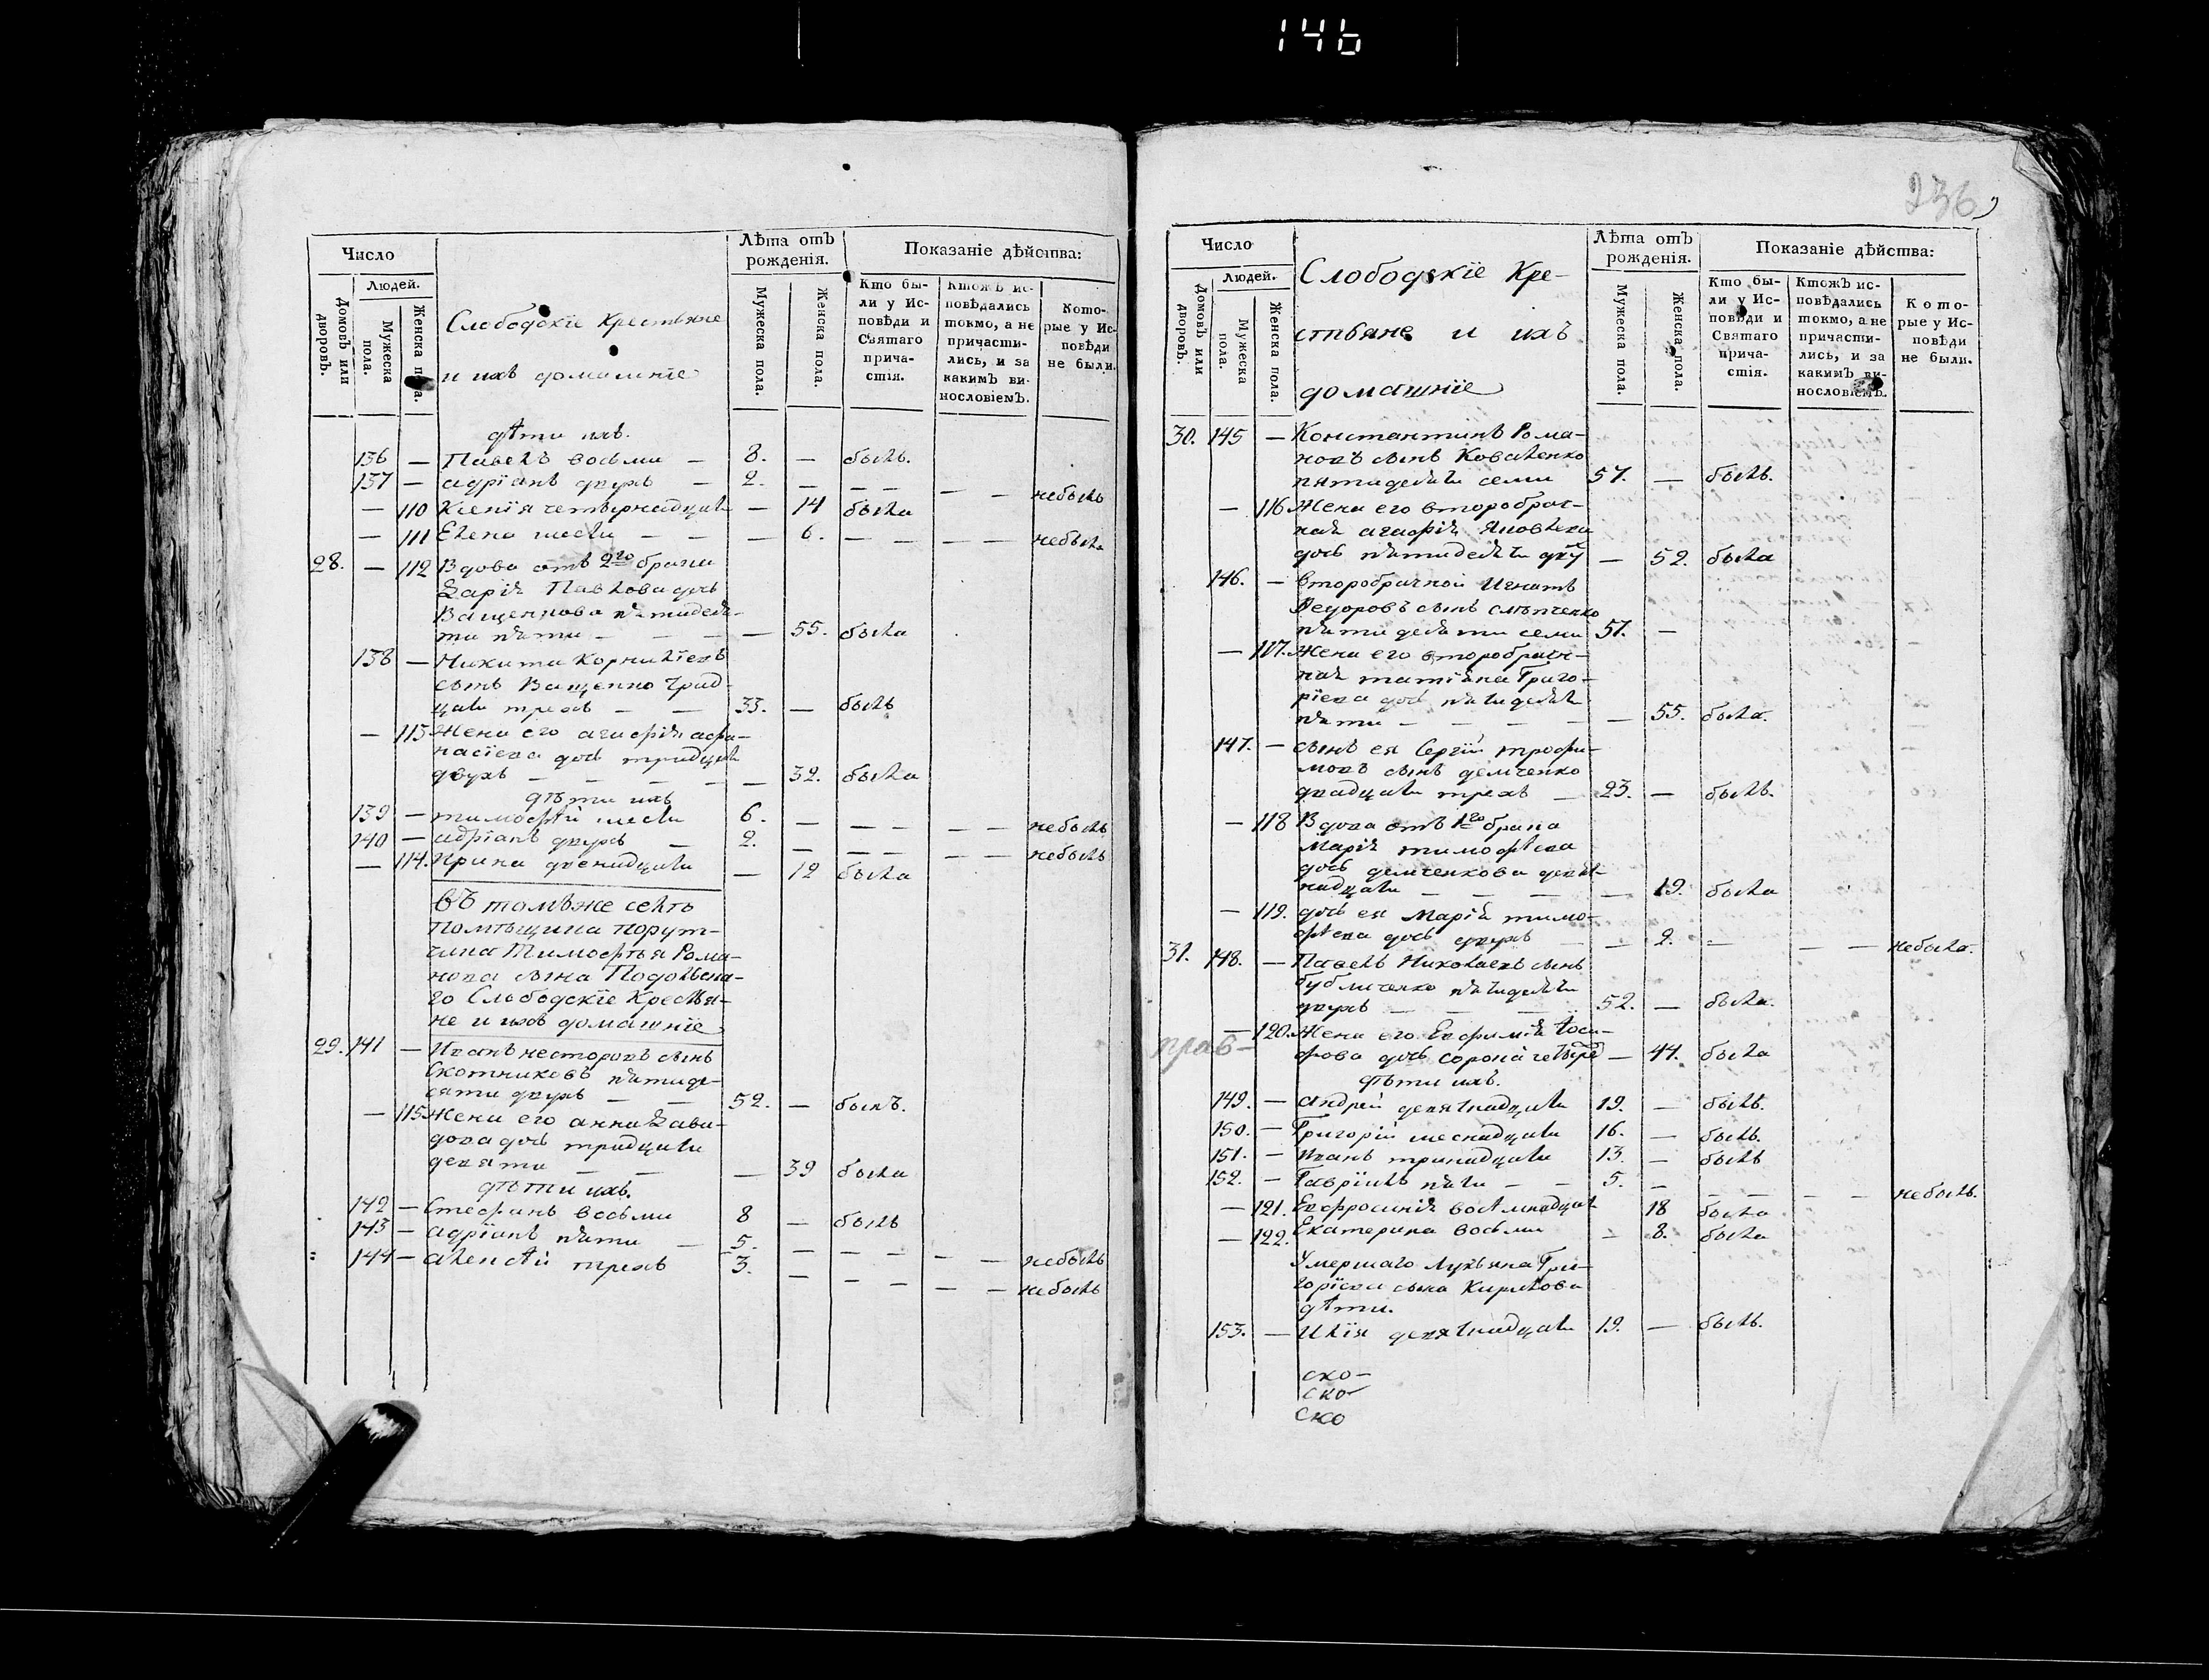 146
Число
Людей.
Домовъ или дворовъ.
Мужеска пола.
Женска пола.
Слободскіе Крестьяне
и ихъ домашніе
Лѣта отъ рожденія.
Мужеска пола.
Женска пола.
Показаніе дѣйства:
Кто бы-
ли у Ис-
повѣди и
Святаго
прича-
стія.
Ктожъ ис-
повѣдались
токмо, а не
причасти-
лись, и за
какимъ ви-
нословіемъ.
Кото-
рые у Ис-
повѣди
не были.
дѣти ихъ.
136 — Павелъ восьми — 8. — былъ.
137 — адріанъ двухъ — 2. — — — — — небылъ
— 110 Ксенія четырнадцати — 14 была
— 111 Елена шести — — — 6. — — — — небыла
28. — 112 Вдова отъ 2го брака
Дарія Павлова дочь
Ващенкова пятидеся-
ти пяти — — — — 55. была
138 — Никита Корниліевъ
сынъ Ващенко трид-
цати трехъ — — 33. — былъ
— 113 Жена его агафія афа-
насіева дочь тридцати
двухъ — — — — — 32. была
дѣти ихъ
139 — тимофѣй шести 6. — — — — — небылъ
140 — адріанъ двухъ — 2. — — — — — небылъ
— 114. Ирина двенадцати — 12 была
въ томъже селѣ
Помѣщика порут-
чика Тимофѣя Рома-
нова сына Подольска-
го Слободскіе Крестья-
не и ихъ домашніе
29. 141 — Иванъ несторовъ сынъ
Скотниковъ пятиде-
сяти двухъ — — 52. — былъ.
— 115 Жена его анна Дави-
дова дочь тридцати
девяти — — — 39 была
дѣти ихъ.
142 — Стефанъ восьми 8 — былъ
143 — адріанъ пяти — 5. — — — — — небылъ
144 — алексѣй трехъ 3. — — — — — небылъ
236
Число
Людей.
Домовъ или дворовъ.
Мужеска пола.
Женска пола.
Слободскіе Кре-
стьяне и ихъ
домашніе
Лѣта отъ рожденія.
Мужеска пола.
Женска пола.
Показаніе дѣйства:
Кто бы-
ли у Ис-
повѣди и
Святаго
прича-
стія.
Ктожъ ис-
повѣдались
токмо, а не
причасти-
лись, и за
какимъ ви-
нословіемъ.
Кото-
рые у Ис-
повѣди
не были.
30. 145 — Константинъ Рома-
новъ сынъ Коваленко
пятидесяти семи 57. — былъ.
— 116 Жена его второбрач-
ная агафія Яковлева
дочь пятидесяти двѹ — 52. была
146. — второбрачной Игнатъ
Федоровъ сынъ
пятидесяти семи 57. —
— 117. Жена его второбрач-
ная татіана Григо-
ріева дочь пятидесяти
пяти — — — — — 55. была.
147. — сынъ ея Сергій трофи-
мовъ сынъ демченко
двадцати трехъ — 23. — былъ.
— 118 Вдова отъ 1го брака
Марія тимофѣева
дочь демченкова девят-
надцати — — — — 19. была
— 119. дочь ея Марія тимо-
фѣева дочь двухъ — — 2. — — — небыла.
31. 148. — Павелъ Николаевъ сынъ
бубличенко пятидесяти
двухъ — — — 52. — была.
прав—
— 120. Жена его Евфимія Іоси-
фова дочь сорока четыре — 44. была
дѣти ихъ.
149. — андрей девятнадцати 19. — былъ.
150. — Григорій шеснадцати 16. — былъ.
151. — Иванъ тринадцати 13. — былъ
152. — Гавріилъ пяти — — 5. — — — — — небылъ.
— 121. Евфросинія восѣмнадцати 18 была
— 122. Екатерина восьми — 8. была
Умершаго Лукьяна Гри-
горіева сына Кирилова
дѣти.
153. — Илія девятнадцати 19. — былъ.
ско-
ско-
ско